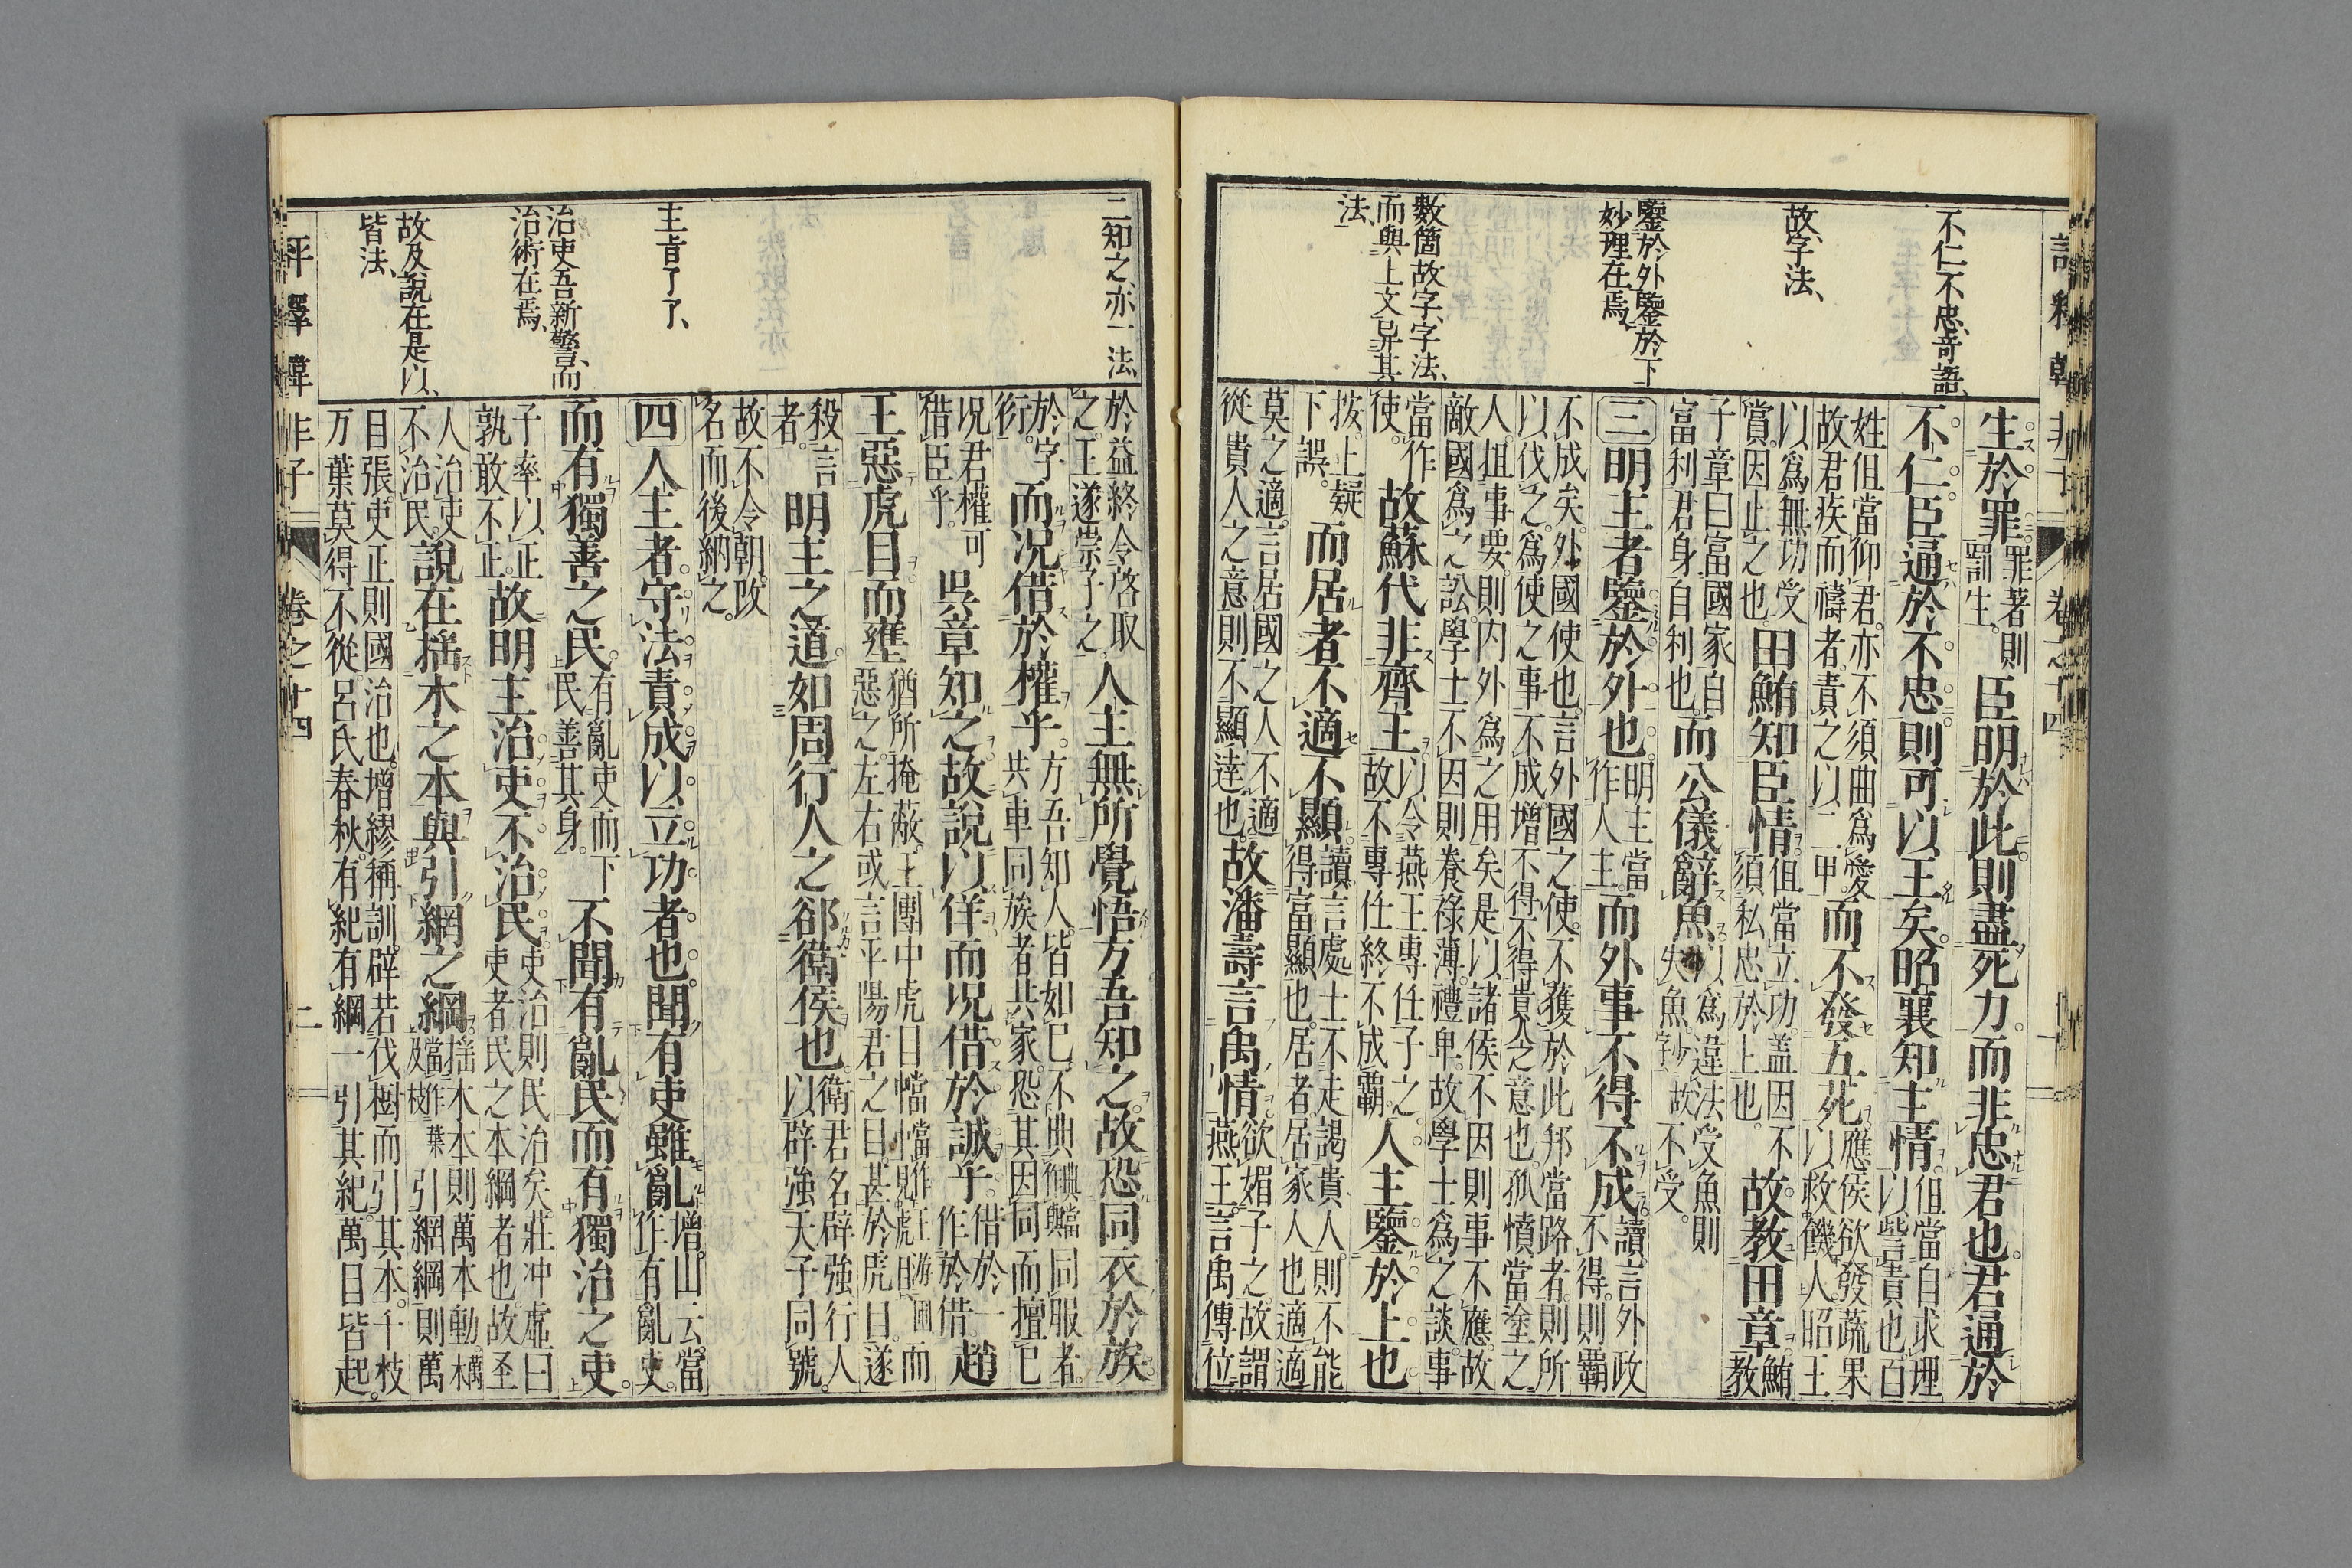 不仁不忠、奇語、
故字法、
鑒於外鑒於下
妙理在焉、
數箇故字、字法、
而與上文异其
法、
生於罪。罪著則罰生。臣明於此則盡死力。而非忠君也。君通於
不仁。臣通於不忠。則可以王矣。昭襄知主情。但當自求理以訾責也。百
姓但當仰君。亦不須曲爲愛
故君疾而禱者。責之以二甲。而不發五苑。應侯欲發蔬果以救饑人。昭王
以爲無功受
賞。因止之也。田鮪知臣情。但當立功。盖因不須私忠於上也。故教田章。鮪教
子章曰富國家自
富。利君身自利也。而公儀辭魚。以爲違法受魚則失魚。故不受。
三明主者。鑒於外也。明主當作人主。而外事不得不成。讀言外政不得。則覇
不成矣。外國使也。言外國之使。不獲於此邦當路者。則所
以伐之。爲使之事不成。增不得不得貴人之意也。孤憤當塗之
人。擅事要。則內外爲之用矣。是以諸侯不因則事不應。故
敵國爲之訟。學士不因則養祿薄。禮卑。故學士爲之談。事
當作
使。故蘇代非齊王。以令燕王專任子之。故不專任終不成覇。人主鑒於上也。
拔。上疑
下誤。而居者不適不顯。讀言處士不走謁貴人。則不能得富顯也。居者居家人也適適
莫之適。言居國之人不適
從貴人之意則不顯達也。故潘壽言禹情。欲媚子之。故謂燕王。言禹傳位
二知之、亦一法、
主旨了了、
治吏吾新警、而
治術在焉、
故及說在是以、
皆法、
於益。終令啓取
之。王遂崇子之。人主無所覺悟。方吾知之。故恐同衣於族。
於字
衍。而况借於權乎。方吾知人。皆如巳。不與同服者。共車。同族者共家。恐其因同而擅巳
况君權可
借臣乎。吳章知之。故說以佯而况借於誠乎。借於一作於借。趙
王惡虎目而壅。猶所掩蔽。王圃中虎目惡之。左右或言平陽君之目。甚於虎目。遂
殺言
者。明主之道。如周行人之郤衛侯也。衛君名辟強。行人以辟強天子同號。
故不令朝。改
名而後納之。
四人主者。守法責成以立功者也。聞有吏雖亂。增。山云。當作有亂吏。
而有獨善之民。有亂吏而下民善其身。不聞有亂民而有獨治之吏。
子率以正
孰敢不正。故明主治吏不治民。吏治則民治矣。莊冲虛曰吏者民之本綱者也。故聖
人治吏
不治民。說在揺木之本。與引網之綱。揺木本則萬本動。引網綱則萬
目張。吏正則國治也。增繆稱訓。辟若伐樹而引其本。千枝
万葉莫得不從。呂氏春秋。有紀有綱。一引其紀。萬目皆起。
評釋韓非子
卷之十四
二